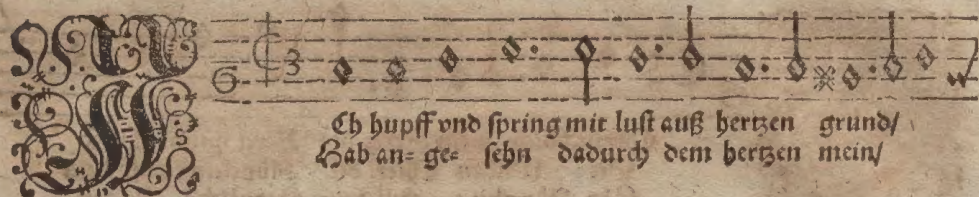 Ch hupff vnd spring mit lust auß hertzen grund/
Hab an= ge= sehn dadurch dem hertzen mein/